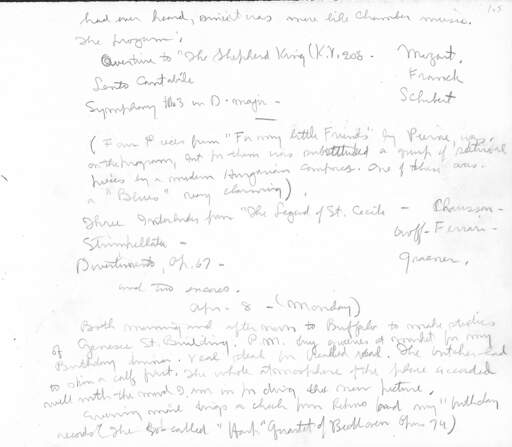 103
had ever heard, music was more like Chamber music.
The program:
Overture to "The Shepherd King (K.V. 208. Mozart.
Lento Cantabile Franck
Symphony No 3 in D-major - Schubert
(Four Pieces from "For my little Friends" by Pierne, was
on the program, but for them was substituted a group of
pieces by a modern Hungarian composer. One of these was
a "Blues" very charming).
Three Interludes from "The Legend of St. Cecile - Chausson -
Strimpellata - Wolf-Ferrari -
Divertimento, Op. 67 - Graener.
and two encores.
Apr. 8 - (Monday)
Both morning and afternoon to Buffalo to make studies
of Genesee St. Building. P.M. buy at market for my
Birthday dinner. veal. The butcher had
to skin a calf first. The whole atmosphere of the place accorded
well with the mood I am in for doing this new picture.
Evening mail brings a check from and my "birthday
records" (The so-called "Harp" Quartet of Beethoven Opus 74)